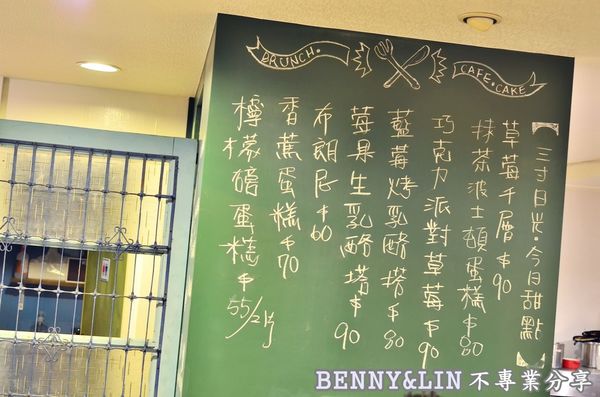 BRUNCH.
CAFE.CAKE
【三寸日光・今日甜點】
草莓千層$90
抹茶波士頓蛋糕$80
巧克力派對草莓$90
藍莓烤乳酪塔$80
莓果生乳酪塔$90
布朗尼$60
香蕉蛋糕$70
檸檬磅蛋糕$55/2片
BENNY&LIN 不專業分享